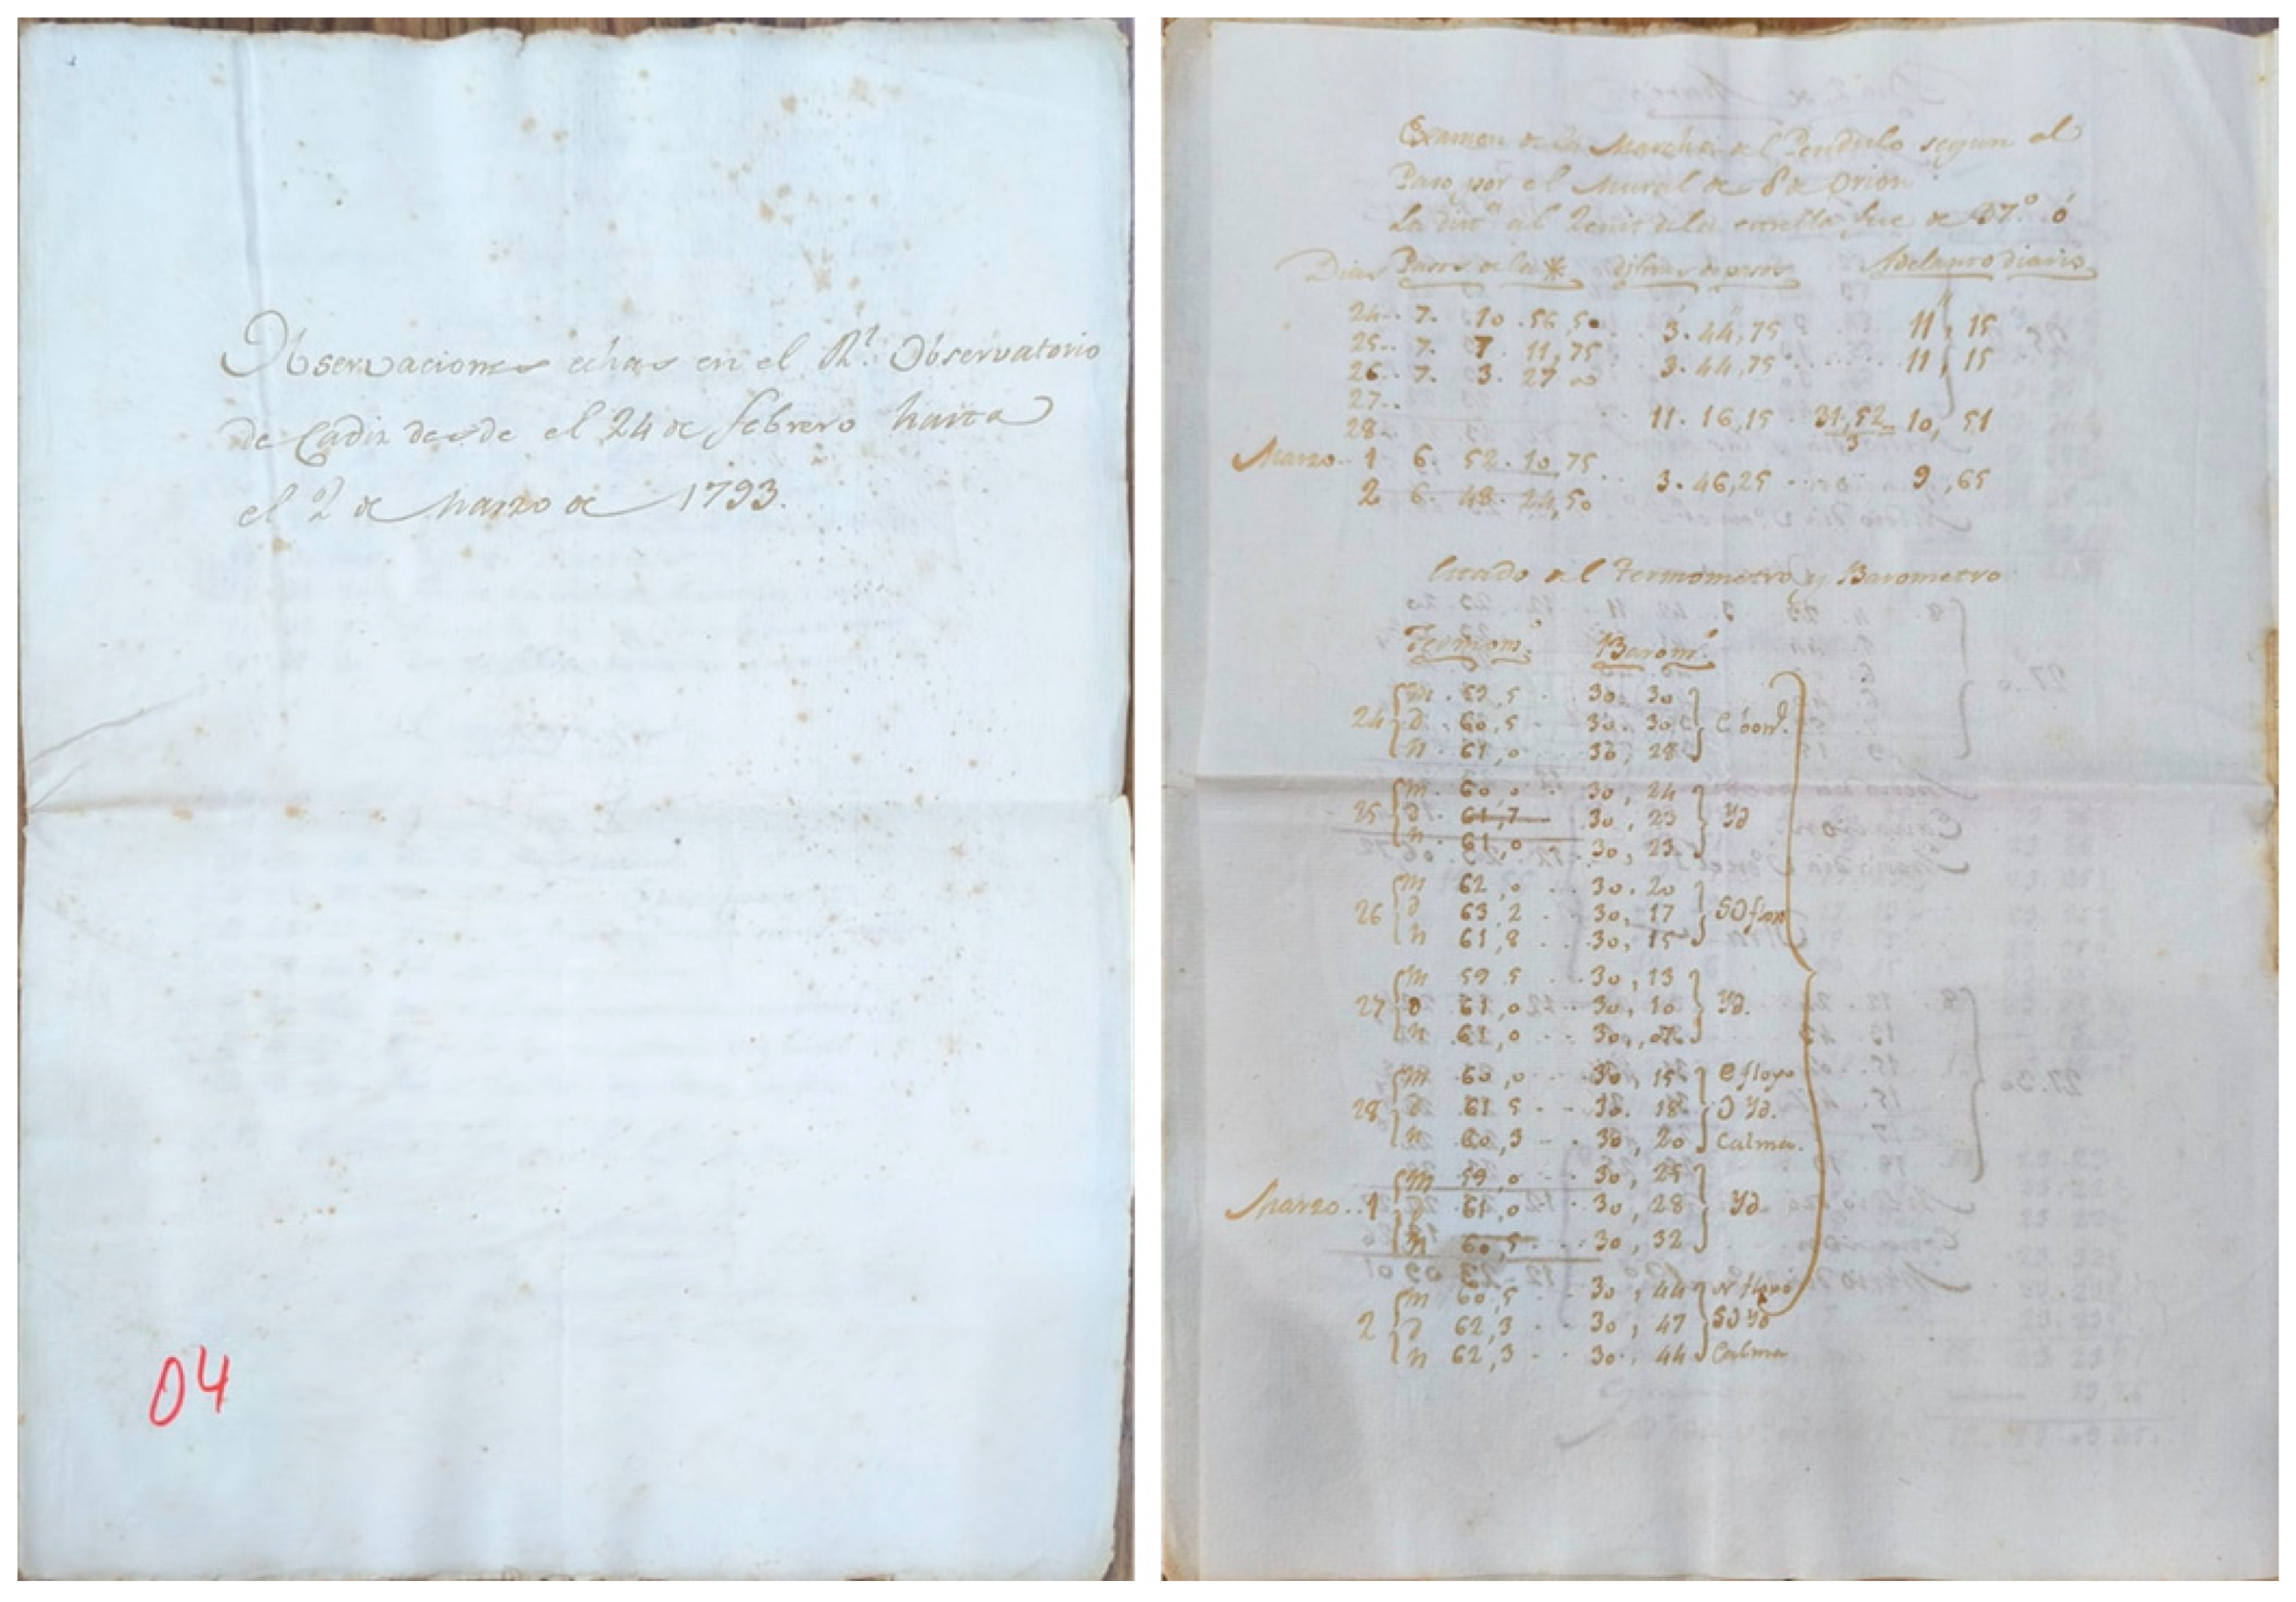 Observaciones echas en el Rl. Observatorio
de Cadiz desde el 24 de febrero hasta
el 2 de Marzo de 1793.
04
Examen de la Marcha del Pendulo segun el
Paso por el Mural de de Orion
La distª al Zenit de la estrella fue de 37.° ó
Dias Pasos de la * difªs de pasos Adelanto diario
24.. 7. 10. 56,50 .. 3. 44,75 11, 15
25.. 7. 7. 11,75 3. 44,75 ...... 11, 15
26.. 7. 3. 27
27..
28.. 11. 16,15 . 31,52/3 10, 51
Marzo.. 1 6. 52. 10,75
2 6. 48. 24,50 3. 46,25 .... 9,65
Estado del Termometro y Barometro
Termomº. Baromº.
24 m. 59,5 .. 30. 30
d. 60,5 .. 30. 30
n. 61,0 ... 30, 28
25 m. 60,0 .. 30, 24
d. 61,7 30, 23 Yd
n. 61,0 ... 30, 23
26 m 62,0 ... 30. 20
d 63,2 .. 30, 17 SO
n 61,8 .. 30, 15
27 m 59 5 .. 30, 13
d 61,0 .. 30, 10 Yd.
n 61,0 ... 30,,
28 m 60,0 ... 30, 15 E floxo
d 61 5 .. 30. 18 O Yd.
n 60,3 .. 30, 20 Calma.
Marzo.. 1 m 59,0 ... 30, 25
d 61,0 .. 30, 28 Yd
n 60,5 ... 30, 32
2 m 60,5 .. 30, 44 floxo
d 62,3 .. 30, 47 SO Yd
n 62,3 .. 30., 44 Calma